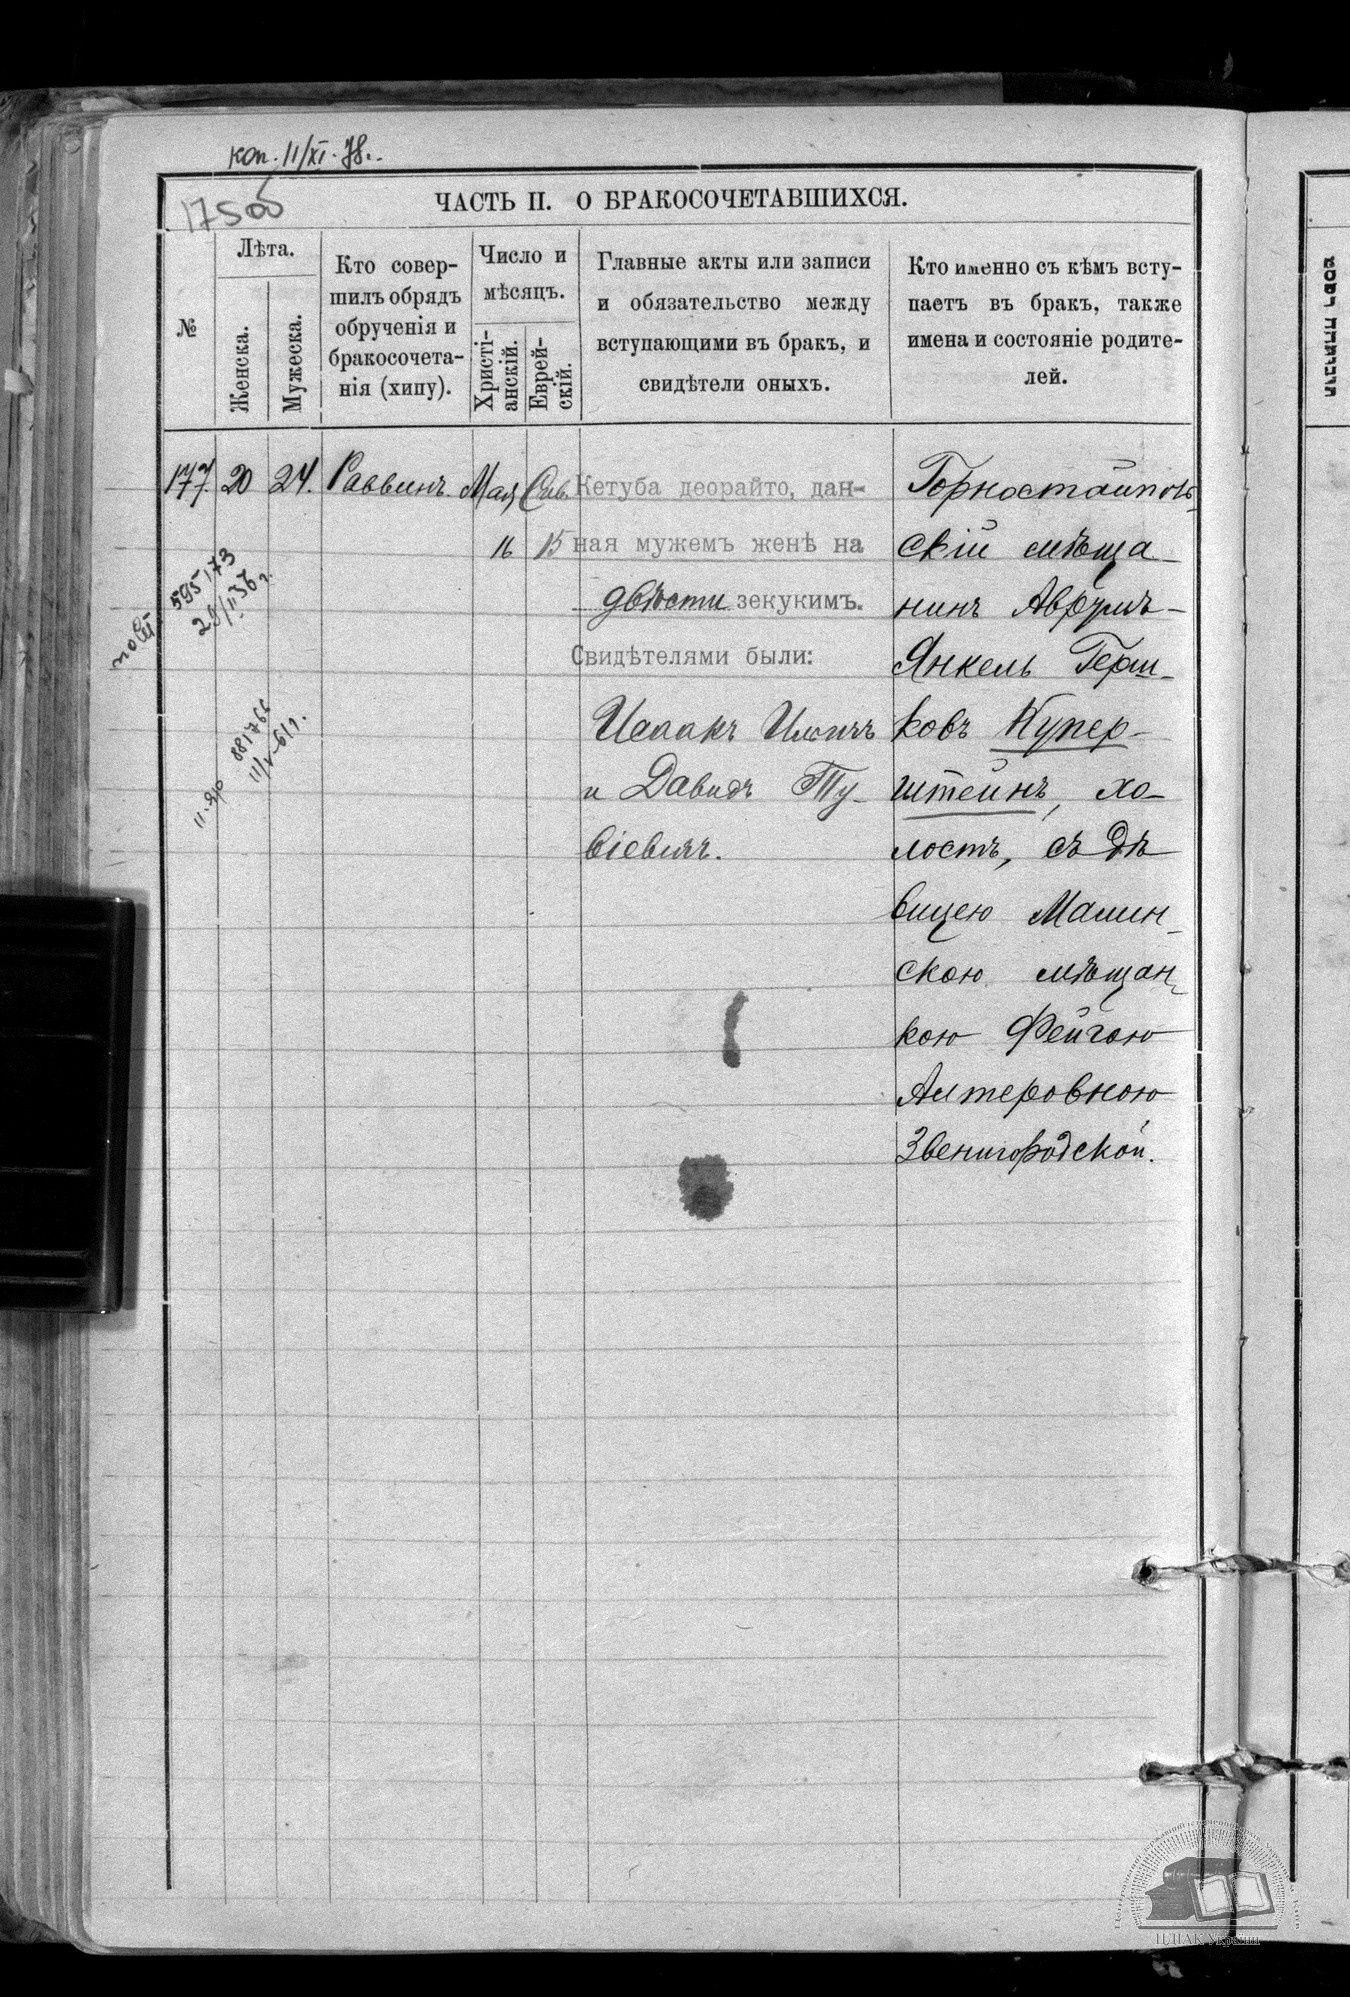 кол. 11/XI. 78.
17500
ЧАСТЬ II. О БРАКОСОЧЕТАВШИХСЯ.
№
Лѣта.
Женска.
Мужеска.
Кто совер-
шилъ обрядъ
обрученія и
бракосочета-
нія (хипу).
Число и
мѣсяцъ.
Христі-
анскій.
Еврей-
скій.
Главные акты или записи
и обязательство между
вступающими въ бракъ, и
свидѣтели оныхъ.
Кто именно съ кѣмъ всту-
паетъ въ бракъ, также
имена и состояніе родите-
лей.
177. 20 24. Раввинъ. Мая Сив.
16 15
Кетуба деорайто, дан-
ная мужемъ женѣ на
двѣсти зекукимъ.
Свидѣтелями были:
Исаакъ Иличъ
и Давидъ Ту-
віевичъ.
Горностайполь-
скій мѣща-
нинъ Аврумъ-
Янкель Герш-
ковъ Купер-
штейнъ, хо-
лостъ, съ дѣ
вицею Малин-
скою мѣщан-
кою Фейгою
Алтеровною
Звенигородской.
595173
28/II 36 г.
881766
11/V-61г.
ЦДІАК України